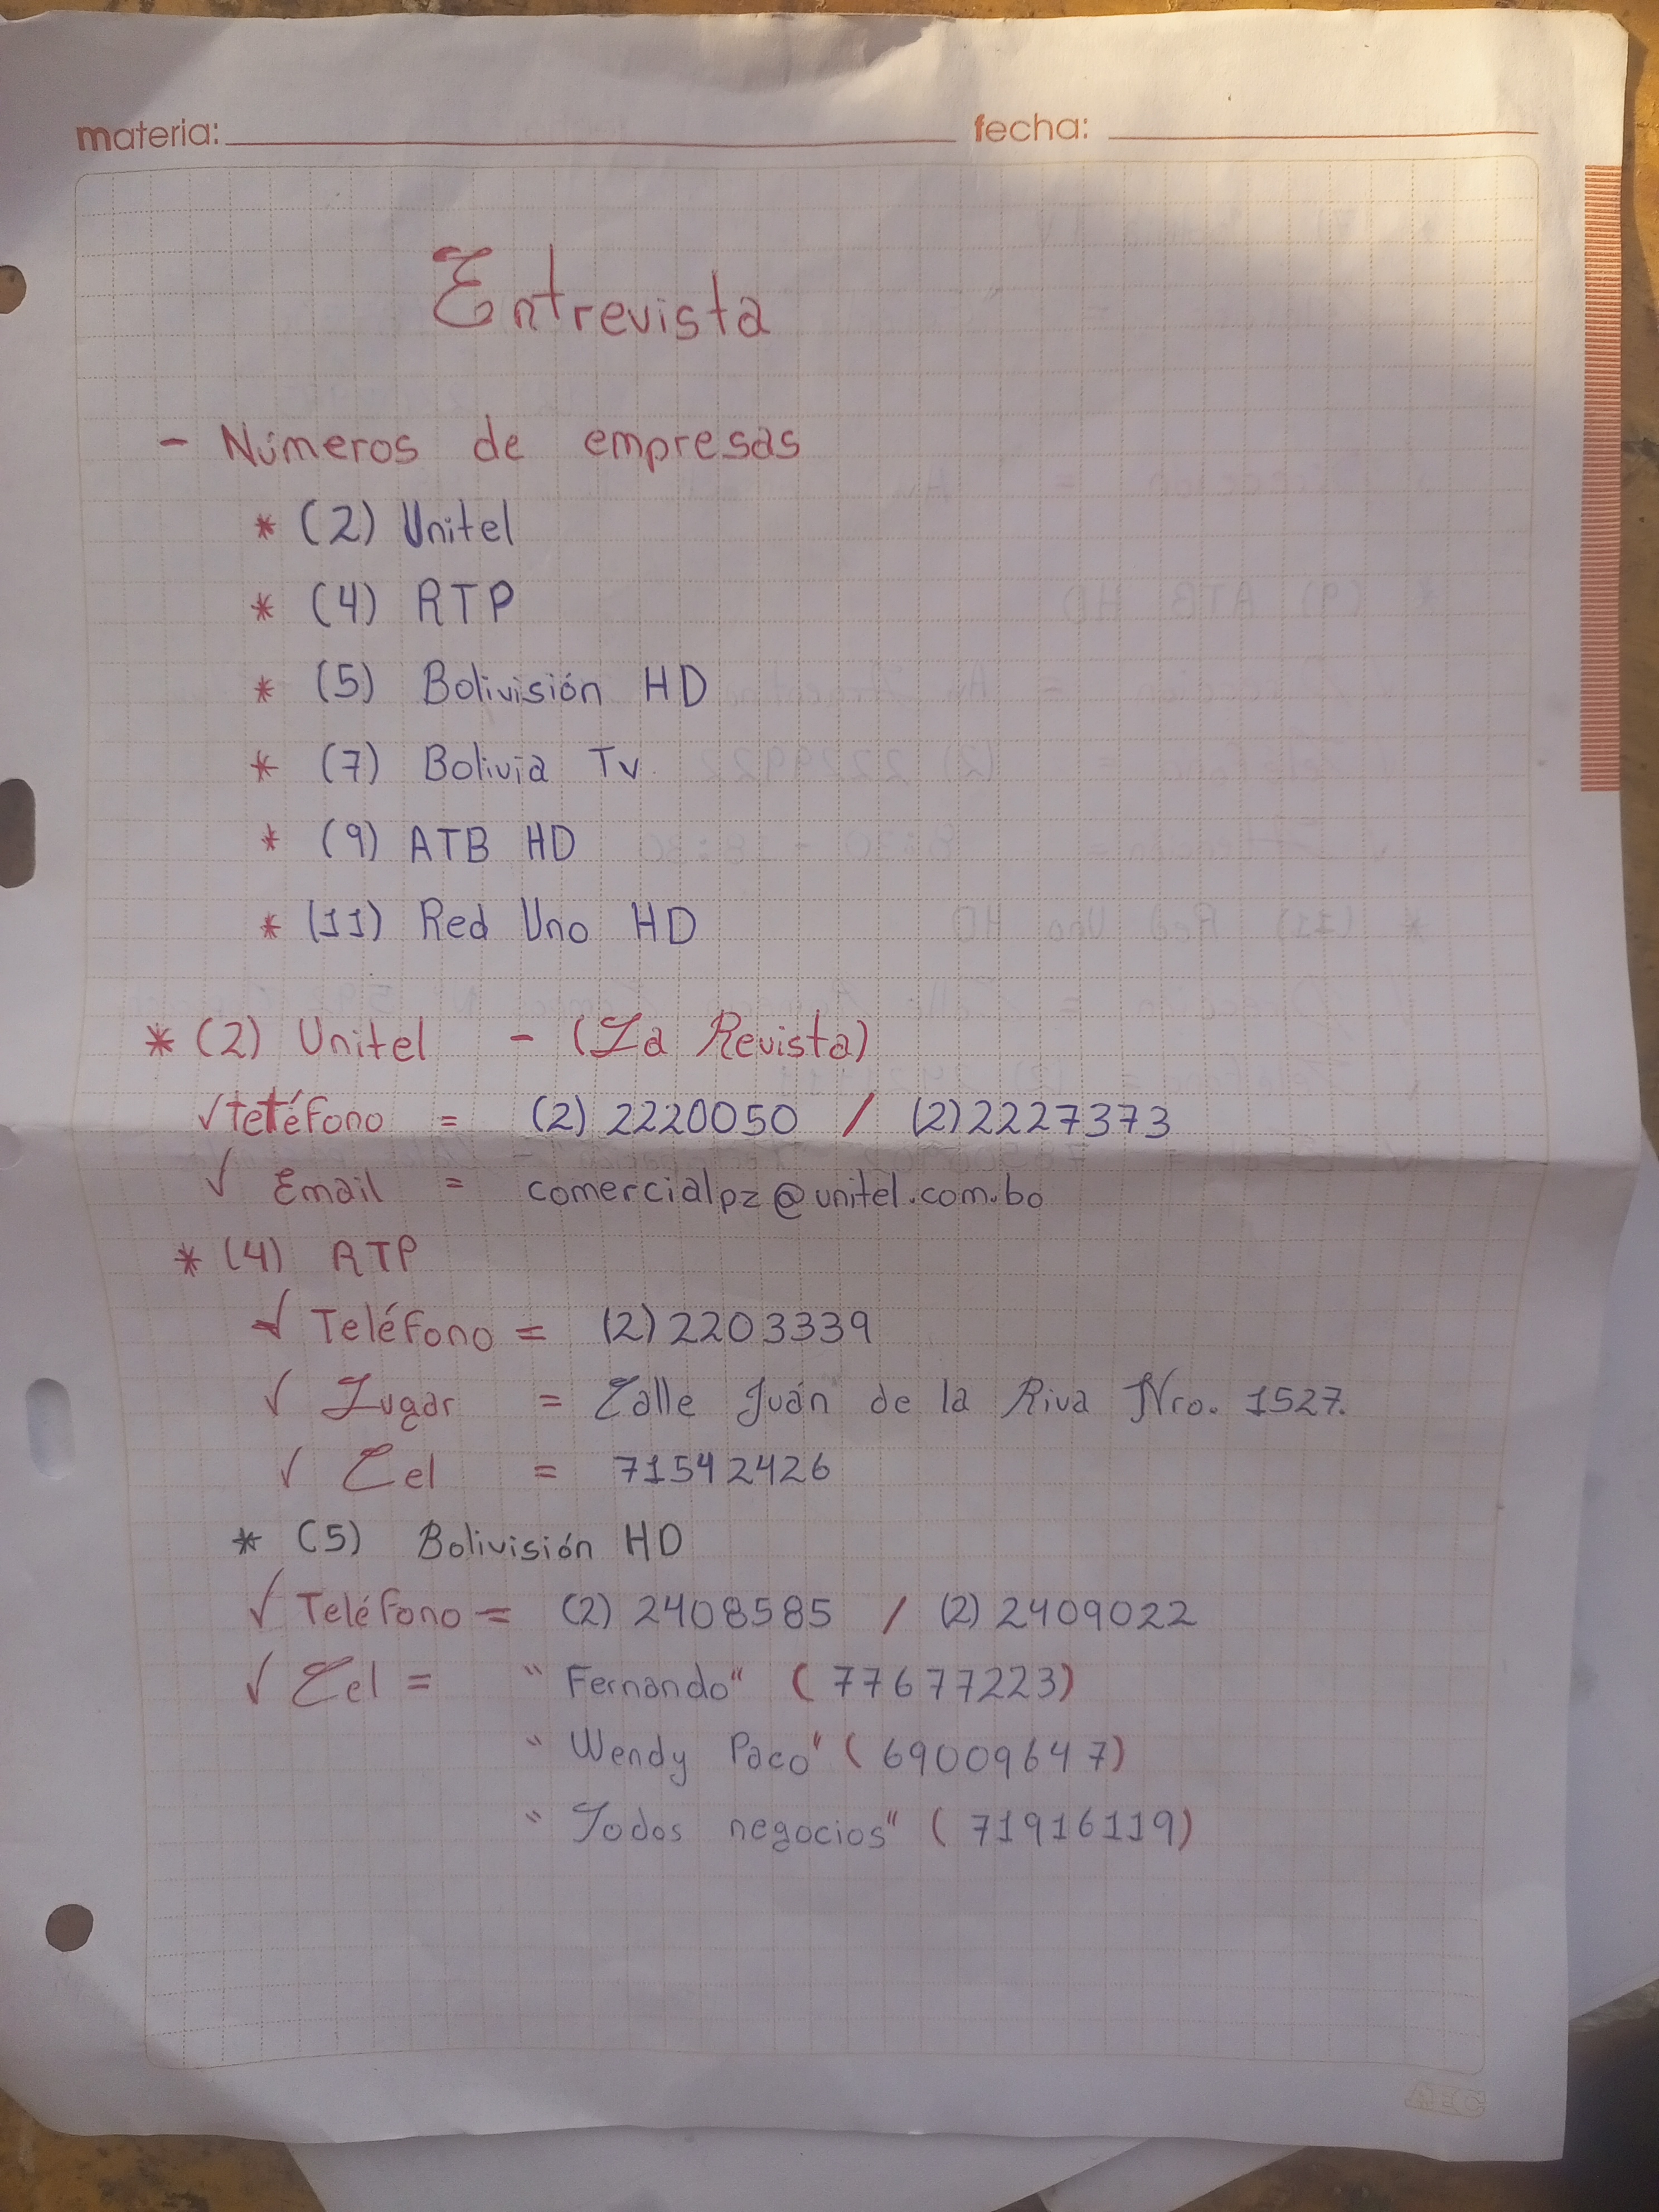 materia: fecha:
Entrevista
- Números de empresas
* (2) Unitel
* (4) RTP
* (5) Bolivisión HD
* (7) Bolivia Tv.
* (9) ATB HD
* (11) Red Uno HD
* (2) Unitel - (La Revista)
√ teléfono = (2) 2220050 / (2) 2227373
√ Email = comercialpz@unitel.com.bo
* (4) RTP
√ Teléfono = (2) 2203339
√ Lugar = Calle Juán de la Riva Nro. 1527.
√ Cel = 71542426
* (5) Bolivisión HD
√ Teléfono = (2) 2408585 / (2) 2409022
√ Cel = "Fernando" (77677223)
"Wendy Paco" (69009647)
"Todos negocios" (71916119)